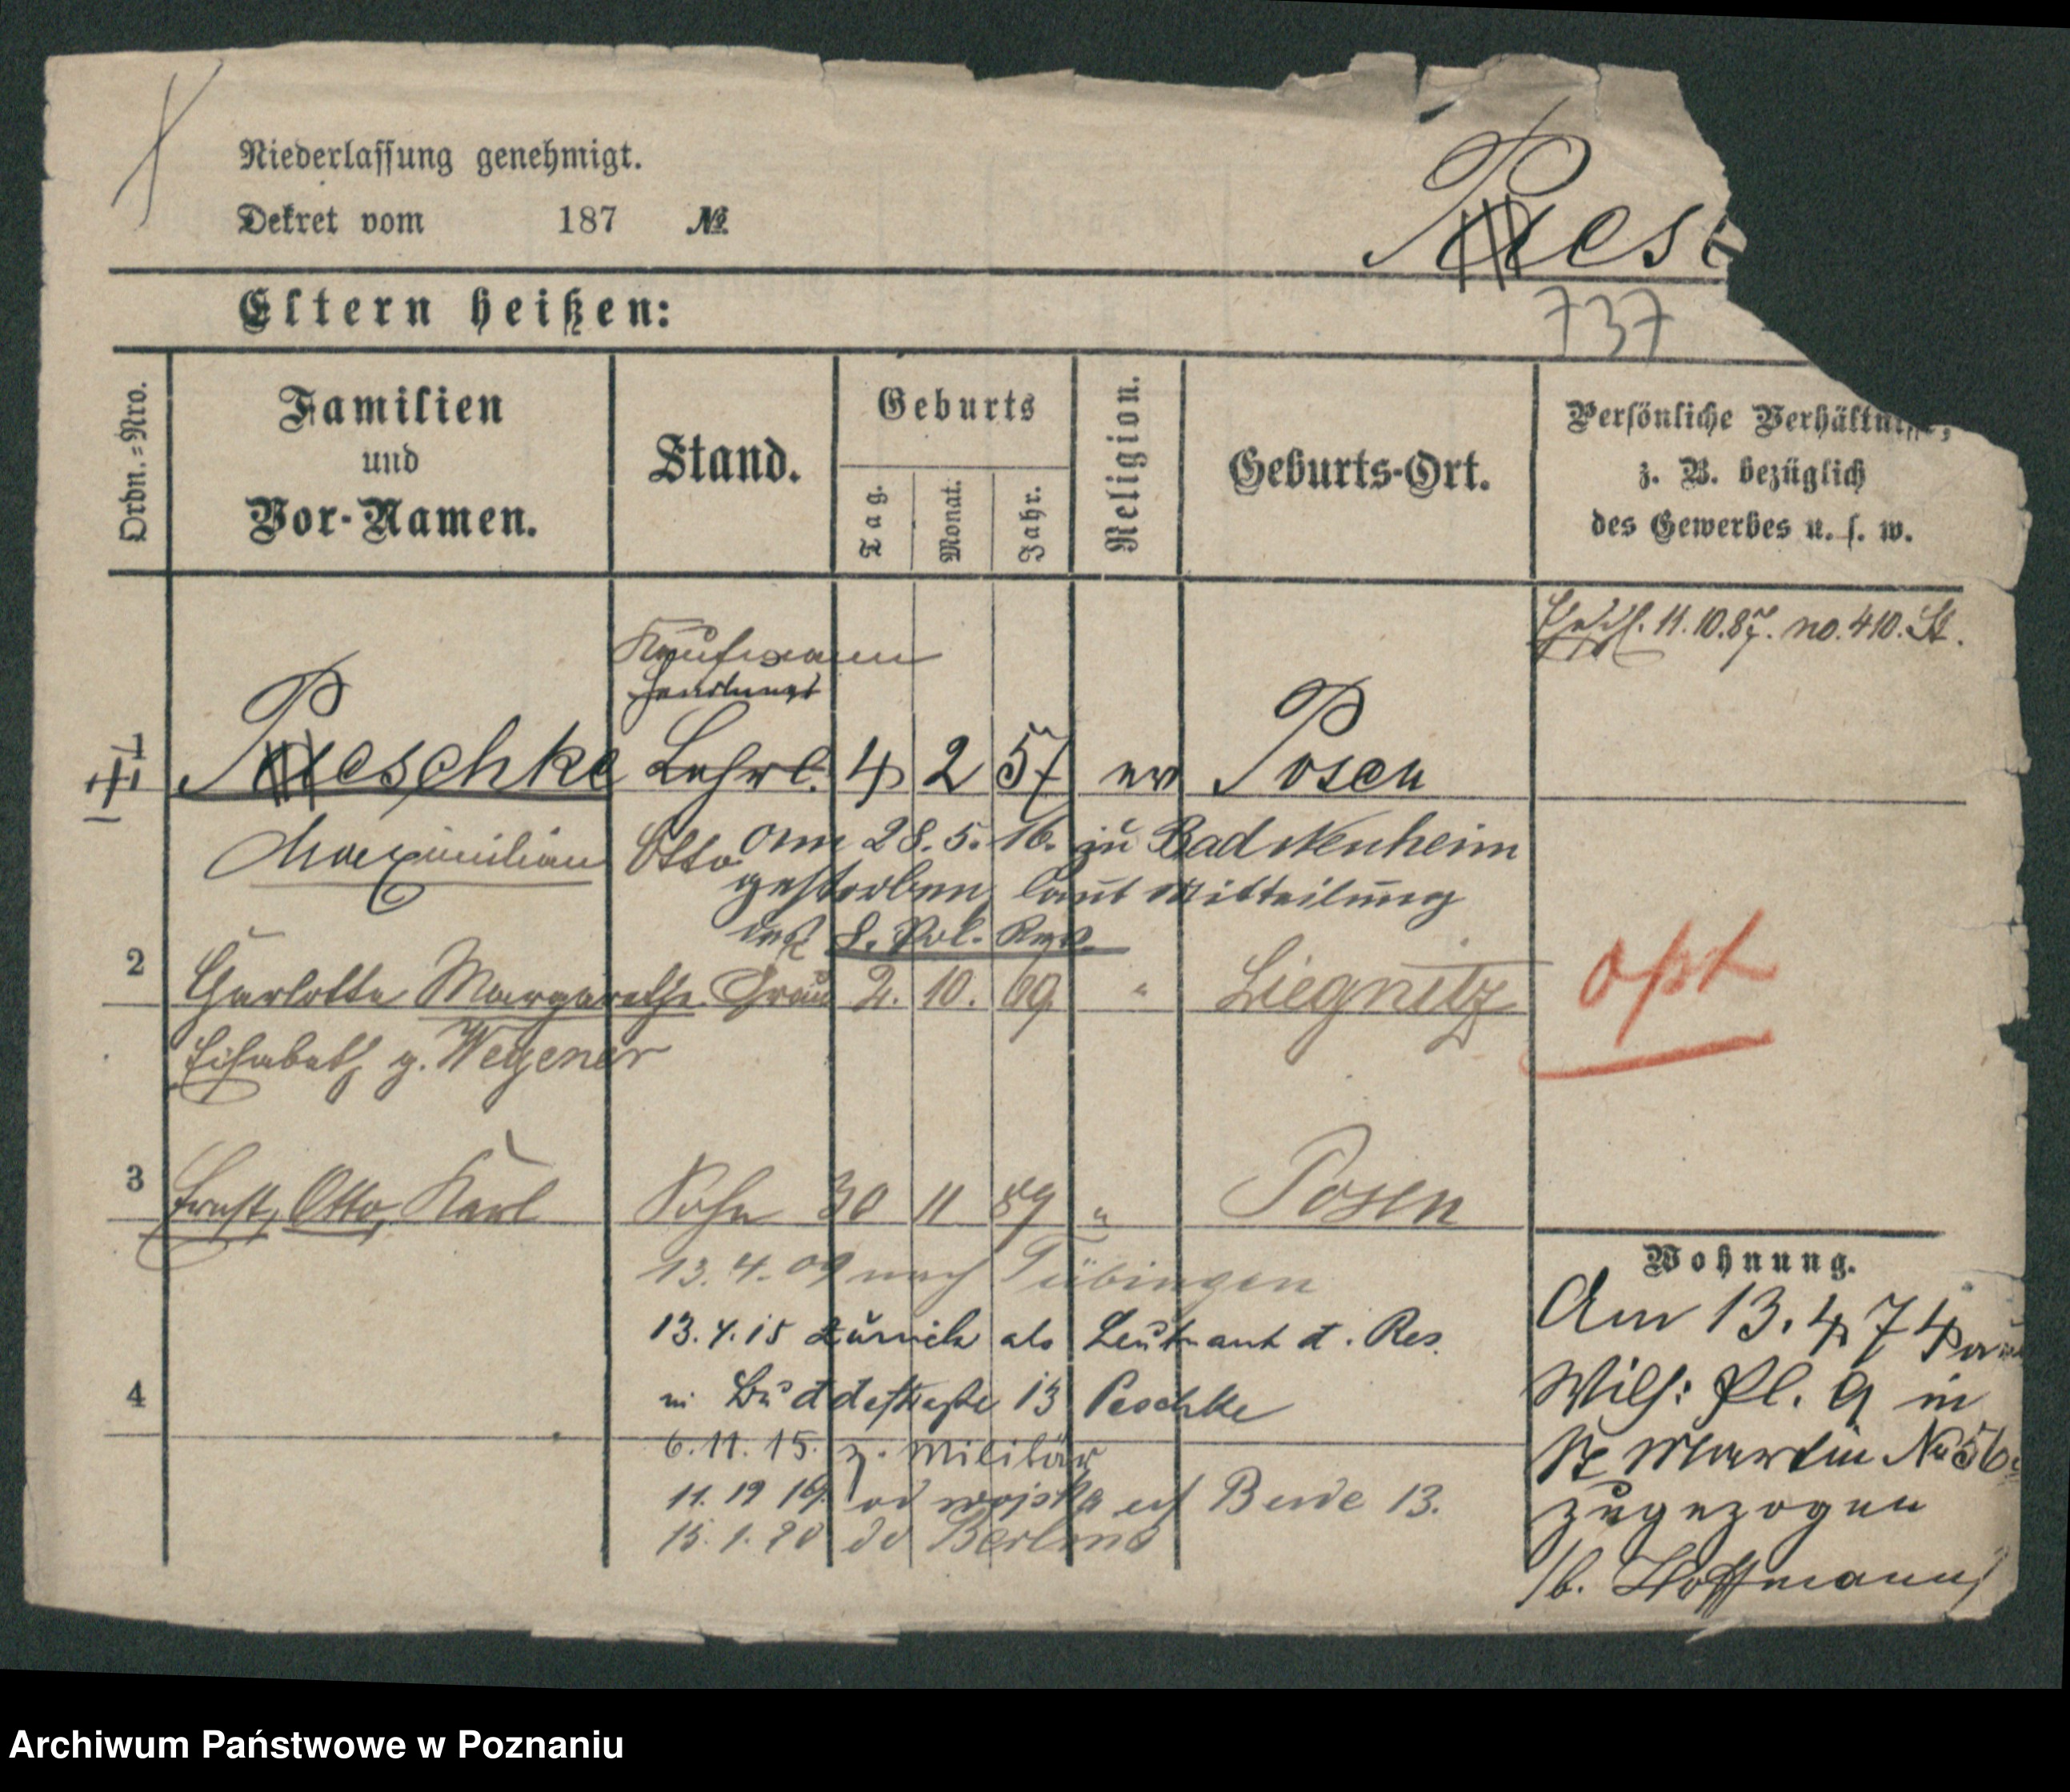 Niederlassung genehmigt.
Dekret vom 187 №
Paesc
737
Eltern heißen:
Ordn.=Nro.
Familien
und
Vor-Namen.
Stand.
Geburts
Tag.
Monat.
Jahr.
Religion.
Geburts-Ort.
Persönliche Verhältnisse,
z. B. bezüglich
des Gewerbes u. s. w.
11.10.87. no. 410. St.
Kaufmann
Handlungs
Paeschke Lehrl. 4 2 57 ev Posen
Maximilian Otto am 28.5.16. zu Bad Neuheim
gestorben, laut Mitteilung
des 8. Pol. Rev.
2 Charlotte Margarethe Frau 2. 10. 69. " Liegnitz
Elisabeth g. Wegener
opt
3 Ernst, Otto, Karl Sohn 30 11 89 " Posen
13.4.09 nach Tübingen
13.4.15 zurück als Leutnant d. Res.
in Buddestraße 13 Peschke
4
6.11.15. z. Militär
11. 19 od wojska 13.
15.1.20 do Berlina
Wohnung.
Am 13.4.74 von
Wilh: Pl. 9 in
St Martin No 56
zugezogen
/b. Hoffmann/
Archiwum Państwowe w Poznaniu